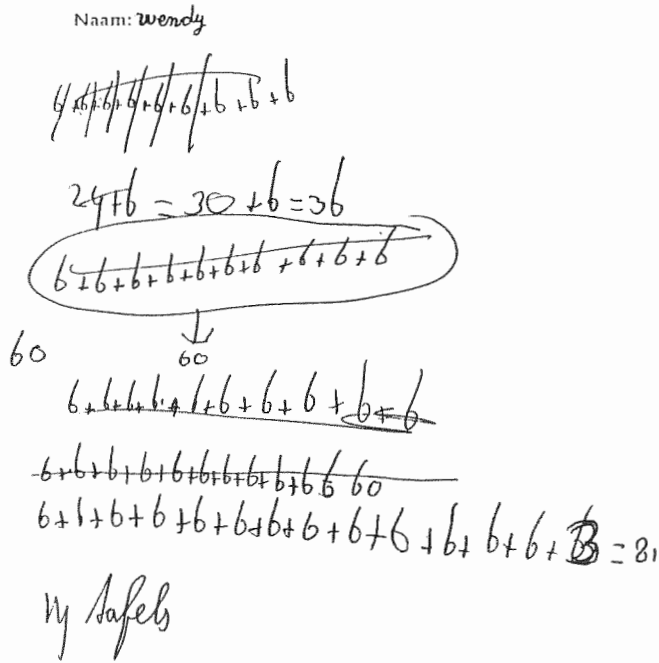 Naam: wendy
6+6+6+6+6+6+6+6+6
24+6=30+6=36
6+6+6+6+6+6+6+6+6+6
60
60
6+6+6+6+6+6+6+6+6+6+6
6+6+6+6+6+6+6+6+6+66 60
6+6+6+6+6+6+6+6+6+6+6+6+6+ =81
tafels